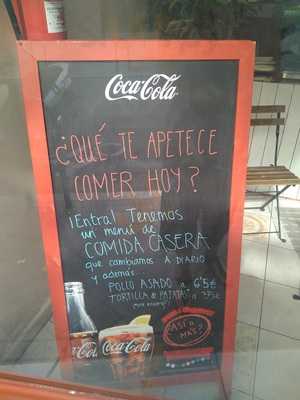 Coca-Cola
¿QUÉ TE APETECE
COMER HOY?
¡Entra! Tenemos
un menú de
COMIDA CASERA
que cambiamos A DIARIO
y además...
POLLO ASADO a 6'5€
TORTILLA de PATATAS
Coca-Cola